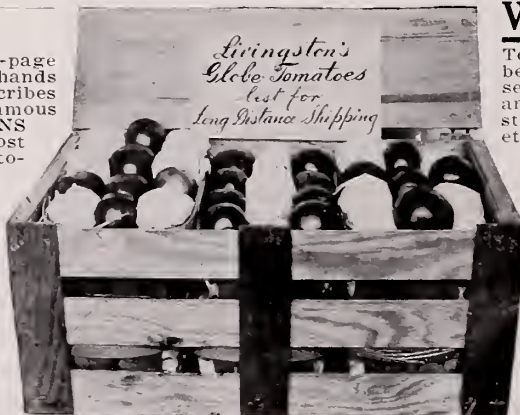 -page
hands
cribes
amous
NS
ost
to-
Livingston's
Globe Tomatoes
best for
Long Distance Shipping
W
To
be
se
an
st
et